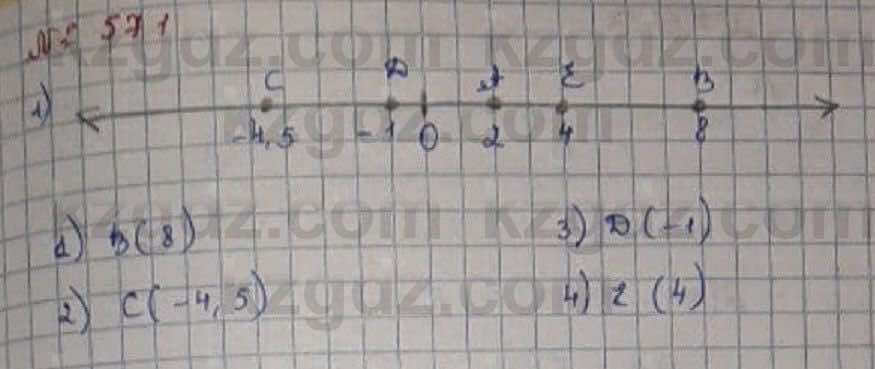 № 571
1)
C D A E B
-4,5 -1 0 2 4 8
1) B(8) 3) D(-1)
2) C(-4,5) 4) E (4)
kzgdz.com kzgdz.com
kzgdz.com
kzgdz.com kzgdz.com
kzgdz.com